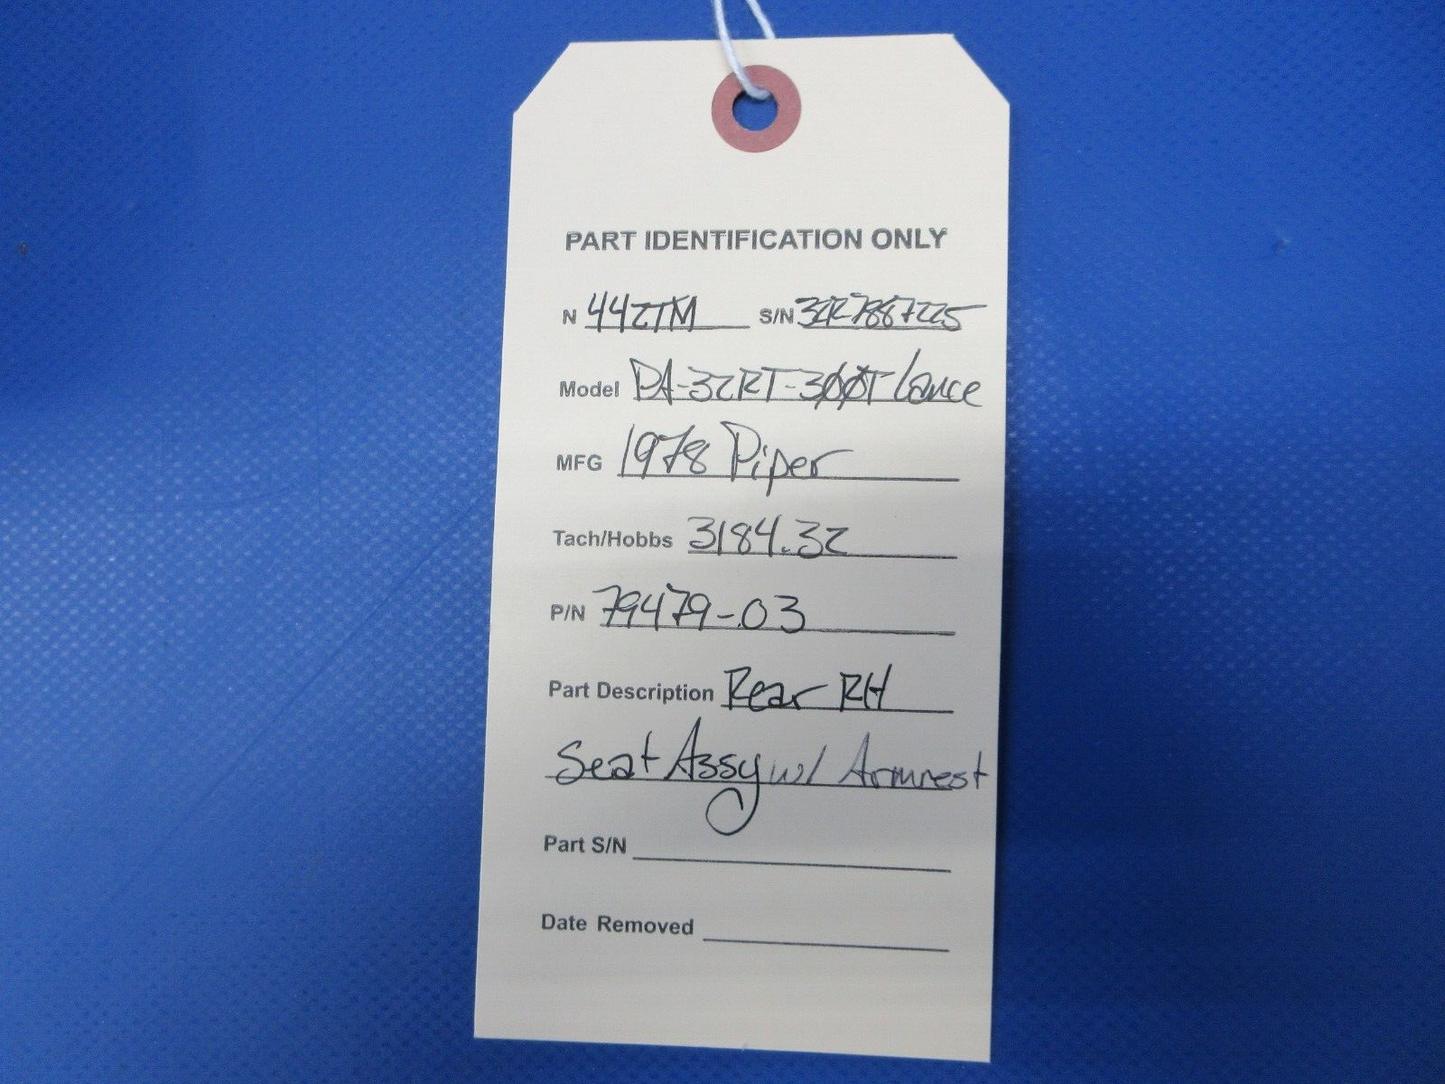 PART IDENTIFICATION ONLY
N 442TM S/N 32R-7887225
Model PA-32RT-300T Lance
MFG 1978 Piper
Tach/Hobbs 3184.32
P/N 79479-03
Part Description Rear RH
Seat Assy w/ Armrest
Part S/N
Date Removed